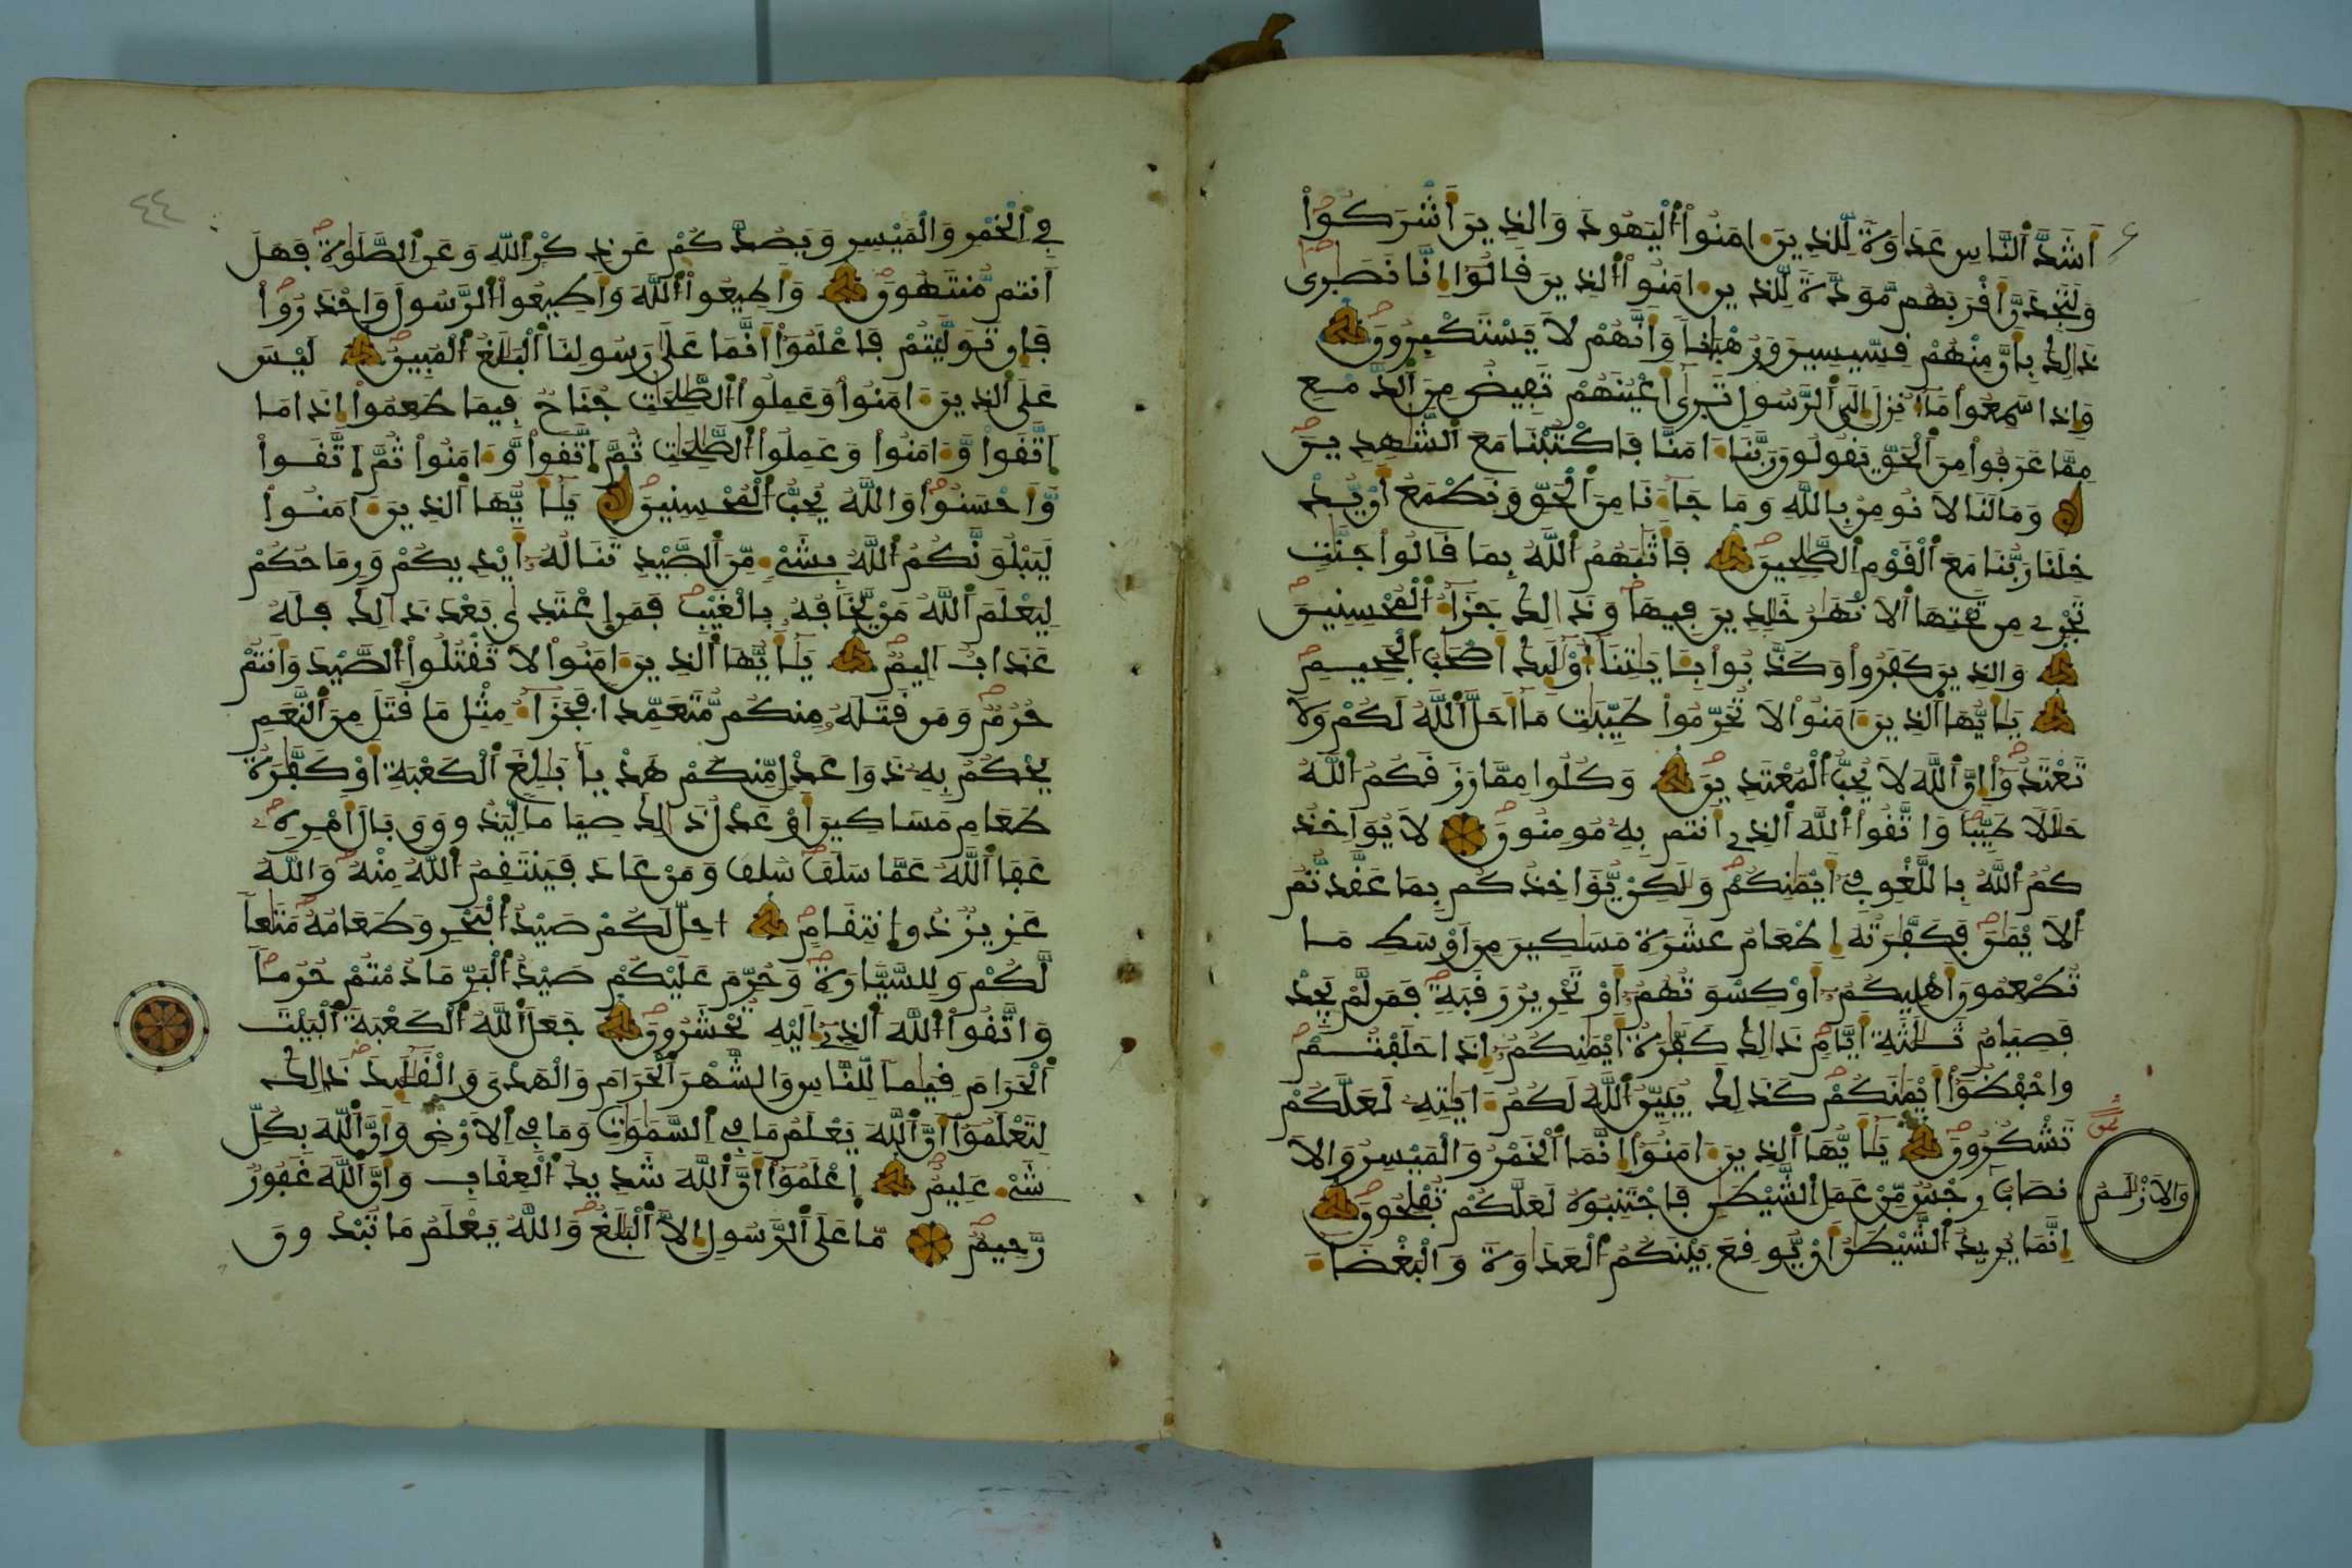 أَشَدَّ ٱلنَّاسِ عَدَاوَةً لِّلذِينَ ءَامَنُوا۟ ٱلْيَهُودَ وَالذِينَ أَشْرَكُوا۟
وَلَتَجِدَنَّ أَقْرَبَهُم مَّوَدَّةً لِّلذِينَ ءَامَنُوا۟ ٱلذِينَ قَالُوٓا۟ إِنَّا نَصَٰرَىٰ
ذَٰلِكَ بِأَنَّ مِنْهُمْ قِسِّيسِينَ وَرُهْبَانًا وَأَنَّهُمْ لَا يَسْتَكْبِرُونَ
وَإِذَا سَمِعُوا۟ مَآ أُنزِلَ إِلَى ٱلرَّسُولِ تَرَىٰٓ أَعْيُنَهُمْ تَفِيضُ مِنَ ٱلدَّمْعِ
مِمَّا عَرَفُوا۟ مِنَ ٱلْحَقِّ يَقُولُونَ رَبَّنَآ ءَامَنَّا فَاكْتُبْنَا مَعَ ٱلشَّٰهِدِينَ
وَمَا لَنَا لَا نُومِنُ بِاللَّهِ وَمَا جَآءَنَا مِنَ ٱلْحَقِّ وَنَطْمَعُ أَنْ يُّدْ
خِلَنَا رَبُّنَا مَعَ ٱلْقَوْمِ ٱلصَّٰلِحِينَ فَأَثَٰبَهُمُ ٱللَّهُ بِمَا قَالُوا۟ جَنَّٰتٍ
تَجْرِے مِن تَحْتِهَا ٱلَانْهَٰرُ خَٰلِدِينَ فِيهَا وَذَٰلِكَ جَزَآءُ ٱلْمُحْسِنِينَ
وَالذِينَ كَفَرُوا۟ وَكَذَّبُوا۟ بِـَٔايَٰتِنَآ أُو۟لَٰٓئِكَ أَصْحَٰبُ ٱلْجَحِيمِ
يَٰٓأَيُّهَا ٱلذِينَ ءَامَنُوا۟ لَا تُحَرِّمُوا۟ طَيِّبَٰتِ مَآ أَحَلَّ ٱللَّهُ لَكُمْ وَلَا
تَعْتَدُوٓا۟ إِنَّ ٱللَّهَ لَا يُحِبُّ ٱلْمُعْتَدِينَ وَكُلُوا۟ مِمَّا رَزَقَكُمُ ٱللَّهُ
حَلَٰلًا طَيِّبًا وَاتَّقُوا۟ ٱللَّهَ ٱلذِےٓ أَنتُم بِهِۦ مُومِنُونَ لَا يُوَاخِذُ
كُمُ ٱللَّهُ بِاللَّغْوِ فِےٓ أَيْمَٰنِكُمْ وَلَٰكِنْ يُّوَاخِذُكُم بِمَا عَقَّدتُّمُ
ٱلَايْمَٰنَ فَكَفَّٰرَتُهُۥٓ إِطْعَامُ عَشَرَةِ مَسَٰكِينَ مِنَ اَوْسَطِ مَا
تُطْعِمُونَ أَهْلِيكُمُۥٓ أَوْ كِسْوَتُهُمُۥٓ أَوْ تَحْرِيرُ رَقَبَةٍ فَمَن لَّمْ يَجِدْ
فَصِيَامُ ثَلَٰثَةِ أَيَّامٍ ذَٰلِكَ كَفَّٰرَةُ أَيْمَٰنِكُمُۥٓ إِذَا حَلَفْتُمْ
وَاحْفَظُوٓا۟ أَيْمَٰنَكُمْ كَذَٰلِكَ يُبَيِّنُ ٱللَّهُ لَكُمُۥٓ ءَايَٰتِهِۦ لَعَلَّكُمْ
تَشْكُرُونَ يَٰٓأَيُّهَا ٱلذِينَ ءَامَنُوٓا۟ إِنَّمَا ٱلْخَمْرُ وَالْمَيْسِرُ وَالَا
نصَابُ رِجْسٌ مِّنْ عَمَلِ ٱلشَّيْطَٰنِ فَاجْتَنِبُوهُ لَعَلَّكُمْ تُفْلِحُونَ
وَالَازْلَٰمُ
إِنَّمَا يُرِيدُ ٱلشَّيْطَٰنُ أَنْ يُّوقِعَ بَيْنَكُمُ ٱلْعَدَٰوَةَ وَالْبَغْضَآءَ
٤٤
فِے ٱلْخَمْرِ وَالْمَيْسِرِ وَيَصُدَّكُمْ عَن ذِكْرِ ٱللَّهِ وَعَنِ ٱلصَّلَوٰةِ فَهَلَ
أَنتُم مُّنتَهُونَ وَأَطِيعُوا۟ ٱللَّهَ وَأَطِيعُوا۟ ٱلرَّسُولَ وَاحْذَرُوا۟
فَإِن تَوَلَّيْتُمْ فَاعْلَمُوٓا۟ أَنَّمَا عَلَىٰ رَسُولِنَا ٱلْبَلَٰغُ ٱلْمُبِينُ لَيْسَ
عَلَى ٱلذِينَ ءَامَنُوا۟ وَعَمِلُوا۟ ٱلصَّٰلِحَٰتِ جُنَاحٌ فِيمَا طَعِمُوٓا۟ إِذَا مَا
ٱتَّقَوا۟ وَّءَامَنُوا۟ وَعَمِلُوا۟ ٱلصَّٰلِحَٰتِ ثُمَّ ٱتَّقَوا۟ وَّءَامَنُوا۟ ثُمَّ ٱتَّقَوا۟
وَّأَحْسَنُوا۟ وَاللَّهُ يُحِبُّ ٱلْمُحْسِنِينَ يَٰٓأَيُّهَا ٱلذِينَ ءَامَنُوا۟
لَيَبْلُوَنَّكُمُ ٱللَّهُ بِشَےْءٍ مِّنَ ٱلصَّيْدِ تَنَالُهُۥٓ أَيْدِيكُمْ وَرِمَاحُكُمْ
لِيَعْلَمَ ٱللَّهُ مَنْ يَّخَافُهُۥ بِالْغَيْبِ فَمَنِ ٱعْتَدَىٰ بَعْدَ ذَٰلِكَ فَلَهُۥ
عَذَابٌ أَلِيمٌ يَٰٓأَيُّهَا ٱلذِينَ ءَامَنُوا۟ لَا تَقْتُلُوا۟ ٱلصَّيْدَ وَأَنتُمْ
حُرُمٌ وَمَن قَتَلَهُۥ مِنكُم مُّتَعَمِّدًا فَجَزَآءُ مِثْلِ مَا قَتَلَ مِنَ ٱلنَّعَمِ
يَحْكُمُ بِهِۦ ذَوَا عَدْلٍ مِّنكُمْ هَدْيًا بَٰلِغَ ٱلْكَعْبَةِ أَوْ كَفَّٰرَةُ
طَعَامِ مَسَاكِينَ أَوْ عَدْلُ ذَٰلِكَ صِيَامًا لِّيَذُوقَ وَبَالَ أَمْرِهِۦ
عَفَا ٱللَّهُ عَمَّا سَلَفَ سلف وَمَنْ عَادَ فَيَنتَقِمُ ٱللَّهُ مِنْهُ وَاللَّهُ
عَزِيزٌ ذُو ٱنتِقَامٍ أُحِلَّ لَكُمْ صَيْدُ ٱلْبَحْرِ وَطَعَامُهُۥ مَتَٰعًا
لَّكُمْ وَلِلسَّيَّارَةِ وَحُرِّمَ عَلَيْكُمْ صَيْدُ ٱلْبَرِّ مَا دُمْتُمْ حُرُمًا
وَاتَّقُوا۟ ٱللَّهَ ٱلذِےٓ إِلَيْهِ تُحْشَرُونَ جَعَلَ ٱللَّهُ ٱلْكَعْبَةَ ٱلْبَيْتَ
ٱلْحَرَامَ قِيَٰمًا لِّلنَّاسِ وَالشَّهْرَ ٱلْحَرَامَ وَالْهَدْىَ وَالْقَلَٰٓئِدَ ذَٰلِكَ
لِتَعْلَمُوٓا۟ أَنَّ ٱللَّهَ يَعْلَمُ مَا فِے ٱلسَّمَٰوَٰتِ وَمَا فِے ٱلَارْضِ وَأَنَّ ٱللَّهَ بِكُلِّ
شَےْءٍ عَلِيمٌ ٱعْلَمُوٓا۟ أَنَّ ٱللَّهَ شَدِيدُ ٱلْعِقَابِ وَأَنَّ ٱللَّهَ غَفُورٌ
رَّحِيمٌ مَّا عَلَى ٱلرَّسُولِ إِلَّا ٱلْبَلَٰغُ وَاللَّهُ يَعْلَمُ مَا تُبْدُونَ